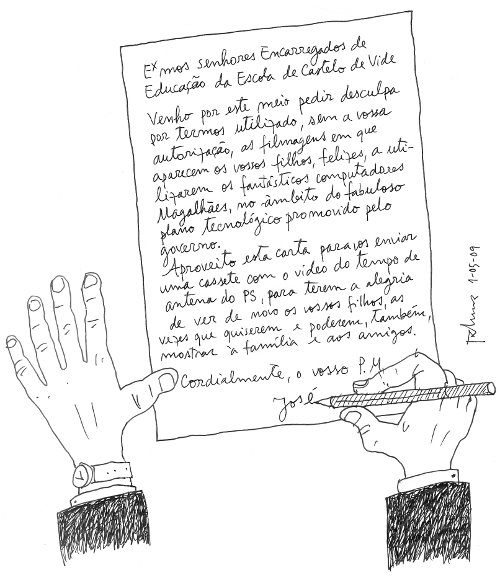 Exmos senhores Encarregados de
Educação da Escola de Castelo de Vide
Venho por este meio pedir desculpa
por termos utilizado, sem a vossa
autorização, as filmagens em que
aparecem os vossos filhos, felizes, a uti-
lizarem os fantásticos computadores
Magalhães, no âmbito do fabuloso
plano tecnológico promovido pelo
governo.
Aproveito esta carta para vos enviar
uma cassete com o video do tempo de
antena do PS, para terem a alegria
de ver de novo os vossos filhos, as
vezes que quiserem e poderem, também,
mostrar à família e aos amigos.
Cordialmente, o vosso P.M
José
1-05-09